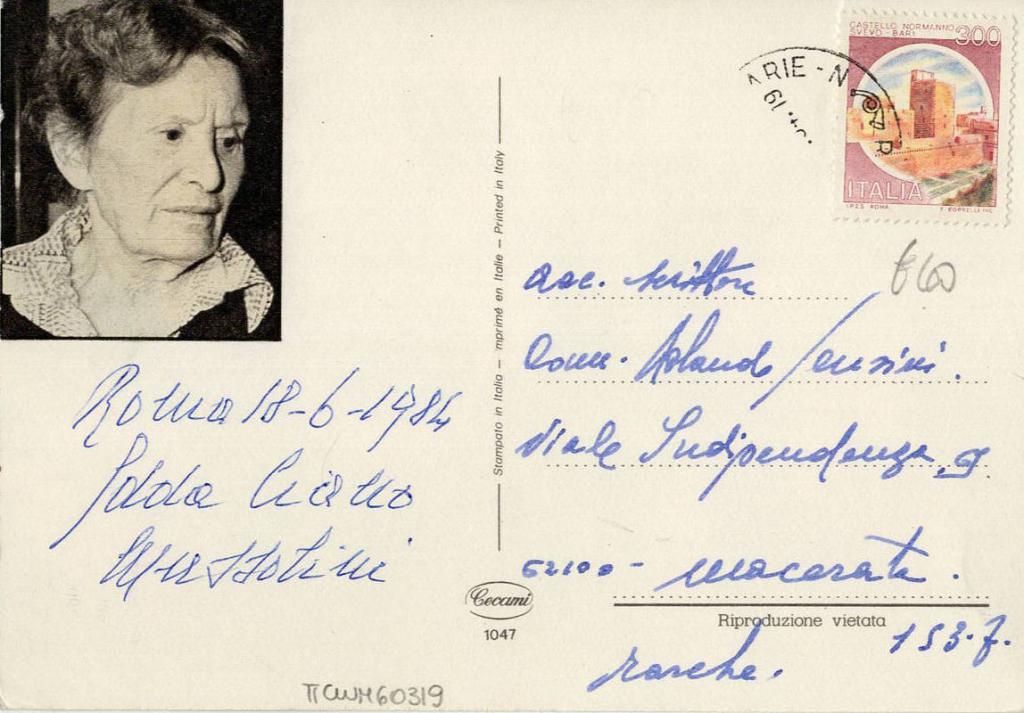 CASTELLO NORMANNO
SVEVO - BARI
300
ITALIA
I.P.Z.S. ROMA
ARIE - N
61
€60
Stampato in Italia – Imprimé en Italie – Printed in Italy
Roma 18-6-1984
Edda Ciano
Mussolini
scrittore
Comm. Rolando Sensini.
Viale Indipendenza,
62100 - Macerata.
Cecami
1047
Riproduzione vietata
153.7.
Marche.
TTCWM60319